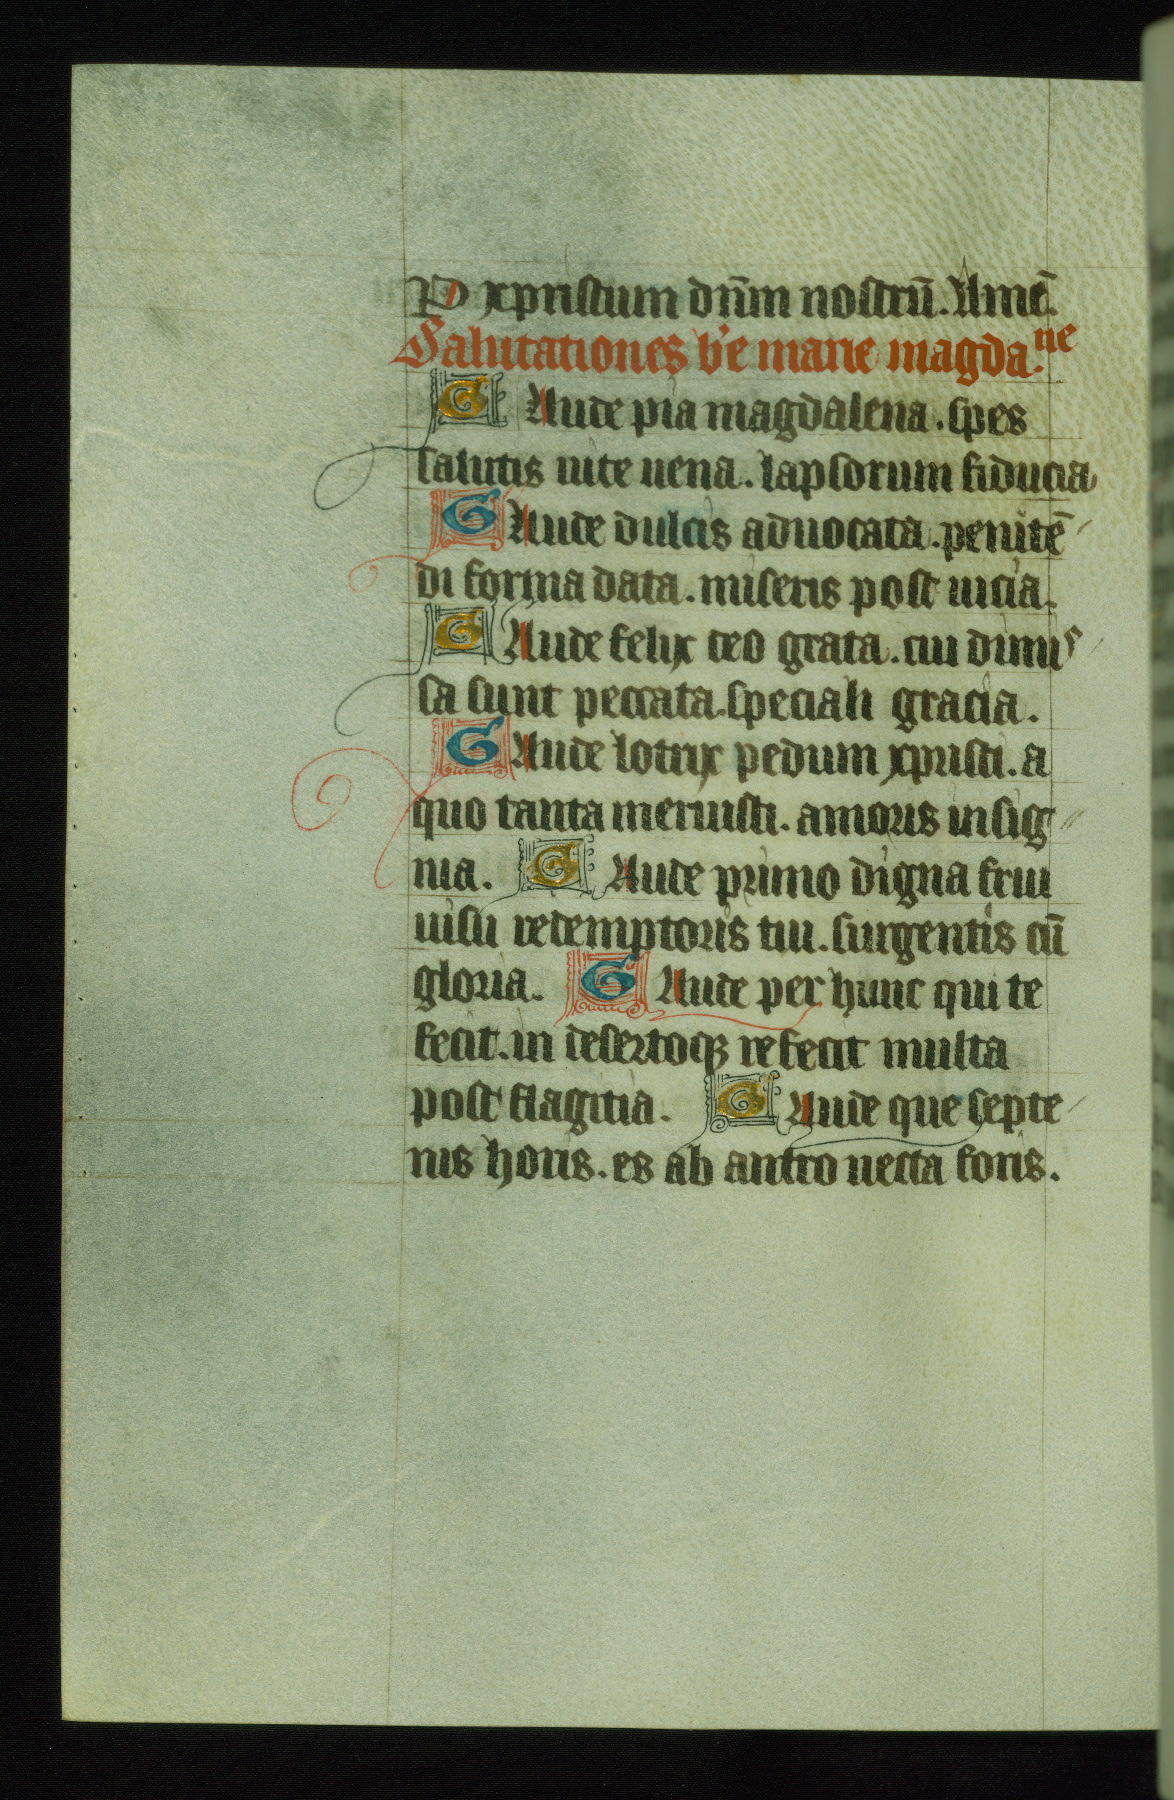 P xpristum dn̄m nostrū. Amē.
Salutationes b'e marie magda.ne
Gaude pia magdalena. spes
salutis uite uena. lapsorum fiducia
Gaude dulcis aduocata. penitē
di forma data. miseris post uicia.
Gaude felix deo grata. cui dimis
sa sunt peccata. speciali gracia.
Gaude lotrix pedum xpristi. a
quo tanta meruisti. amoris insig
nia. Gaude primo digna frui
uisu redemptoris tui. surgentis cū
gloria. Gaude per hunc qui te
fecit. in desertoqꝫ refecit multa
post flagitia. Gaude que septe
nis horis. es ab antro uecta foris.